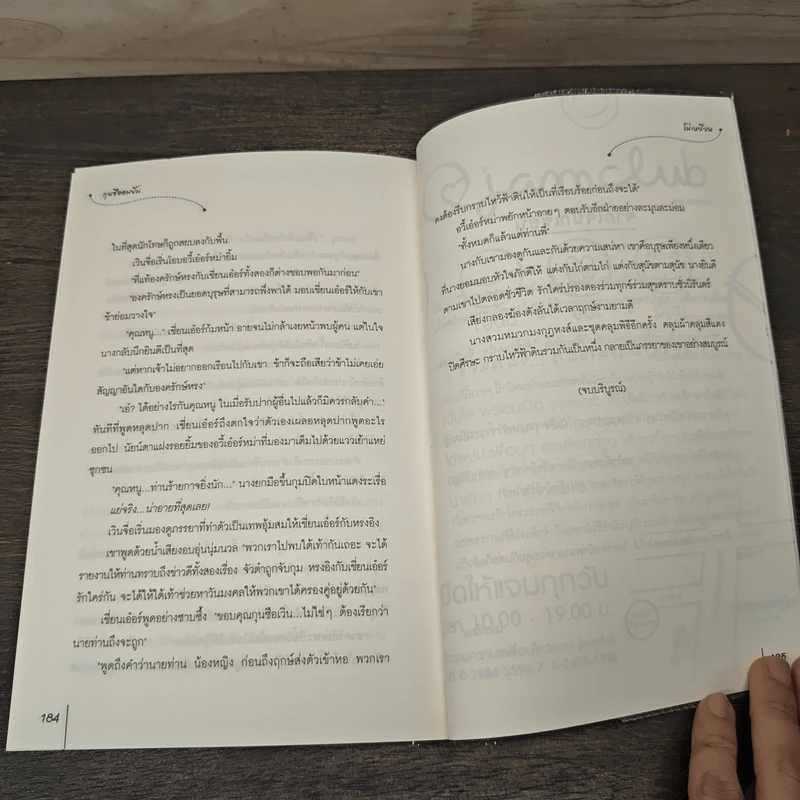 กุนซือขอมยิ้ม
ในที่สุดนักโทษก็ถูกสยบลงกับพื้น
เวินจื่อเริ่นโอบอวี้เอ๋อร์หม่ายิ้ม
"ที่แท้องครักษ์หรงกับเชี่ยนเอ๋อร์ทั้งสองก็ต่างชอบพอกันมาก่อน"
"องครักษ์หรงเป็นยอดบุรุษที่สามารถพึ่งพาได้ มอบเชี่ยนเอ๋อร์ให้กับเขา
ข้าย่อมวางใจ"
"คุณหนู..." เชี่ยนเอ๋อร์ก้มหน้า อายจนไม่กล้าเงยหน้าพบผู้คน แต่ในใจ
นางกลับนึกยินดีเป็นที่สุด
"แต่หากเจ้าไม่อยากออกเรือนไปกับเขา ข้าก็จะถือเสียว่าข้าไม่เคยเอ่ย
สัญญาอันใดกับองครักษ์หรง"
"เอ๋? ได้อย่างไรกันคุณหนู ในเมื่อรับปากผู้อื่นไปแล้วก็มิควรกลับคำ..."
ทันทีที่พูดหลุดปาก เชี่ยนเอ๋อร์ถึงตกใจว่าตัวเองเผลอหลุดปากพูดอะไร
ออกไป นัยน์ตาแฝงรอยยิ้มของอวี้เอ๋อร์หม่าที่มองมาเต็มไปด้วยแววเย้าแหย่
ซุกซน
"คุณหนู...ท่านร้ายกาจยิ่งนัก..." นางยกมือขึ้นกุมปิดใบหน้าแดงระเรื่อ
แย่จริง...น่าอายที่สุดเลย!
เวินจื่อเริ่นมองดูภรรยาที่ทำตัวเป็นเทพอุ้มสมให้เชี่ยนเอ๋อร์กับหรงอิง
เขาพูดด้วยน้ำเสียงอบอุ่นนุ่มนวล "พวกเราไปพบใต้เท้ากันเถอะ จะได้
รายงานให้ท่านทราบถึงข่าวดีทั้งสองเรื่อง จัวต๋าถูกจับกุม หรงอิงกับเชี่ยนเอ๋อร์
รักใคร่กัน จะได้ให้ใต้เท้าช่วยหาวันมงคลให้พวกเขาได้ครองคู่อยู่ด้วยกัน"
เชี่ยนเอ๋อร์พูดอย่างซาบซึ้ง "ขอบคุณกุนซือเวิน...ไม่ใช่ๆ ต้องเรียกว่า
นายท่านถึงจะถูก"
"พูดถึงคำว่านายท่าน น้องหญิง ก่อนถึงฤกษ์ส่งตัวเข้าหอ พวกเรา
184
โม่เหยียน
คงต้องรีบกราบไหว้ฟ้าดินให้เป็นที่เรียบร้อยก่อนถึงจะได้"
อวี้เอ๋อร์หม่าพยักหน้าอายๆ ตอบรับอีกฝ่ายอย่างละมุนละม่อม
"ทั้งหมดก็แล้วแต่ท่านพี่"
นางกับเขามองดูกันและกันด้วยความเสน่หา เขาคือบุรุษเพียงหนึ่งเดียว
ที่นางยอมมอบหัวใจภักดีให้ แต่งกับไก่ตามไก่ แต่งกับสุนัขตามสุนัข นางยินดี
ตามเขาไปตลอดชั่วชีวิต รักใคร่ปรองดองร่วมทุกข์ร่วมสุขตราบชั่วนิรันดร์
เสียงกลองฆ้องดังลั่นได้เวลาฤกษ์งามยามดี
นางสวมหมวกมงกุฎหงส์และชุดคลุมพิธีอีกครั้ง คลุมผ้าคลุมสีแดง
ปิดศีรษะ กราบไหว้ฟ้าดินรวมกันเป็นหนึ่ง กลายเป็นภรรยาของเขาอย่างสมบูรณ์
(จบบริบูรณ์)